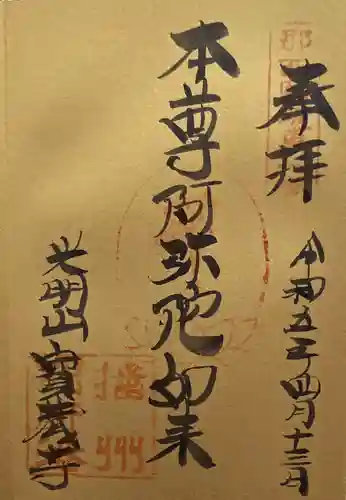 奉拝
令和五年四月十三日
本尊阿弥陀如来
光明山
寶養寺
播州